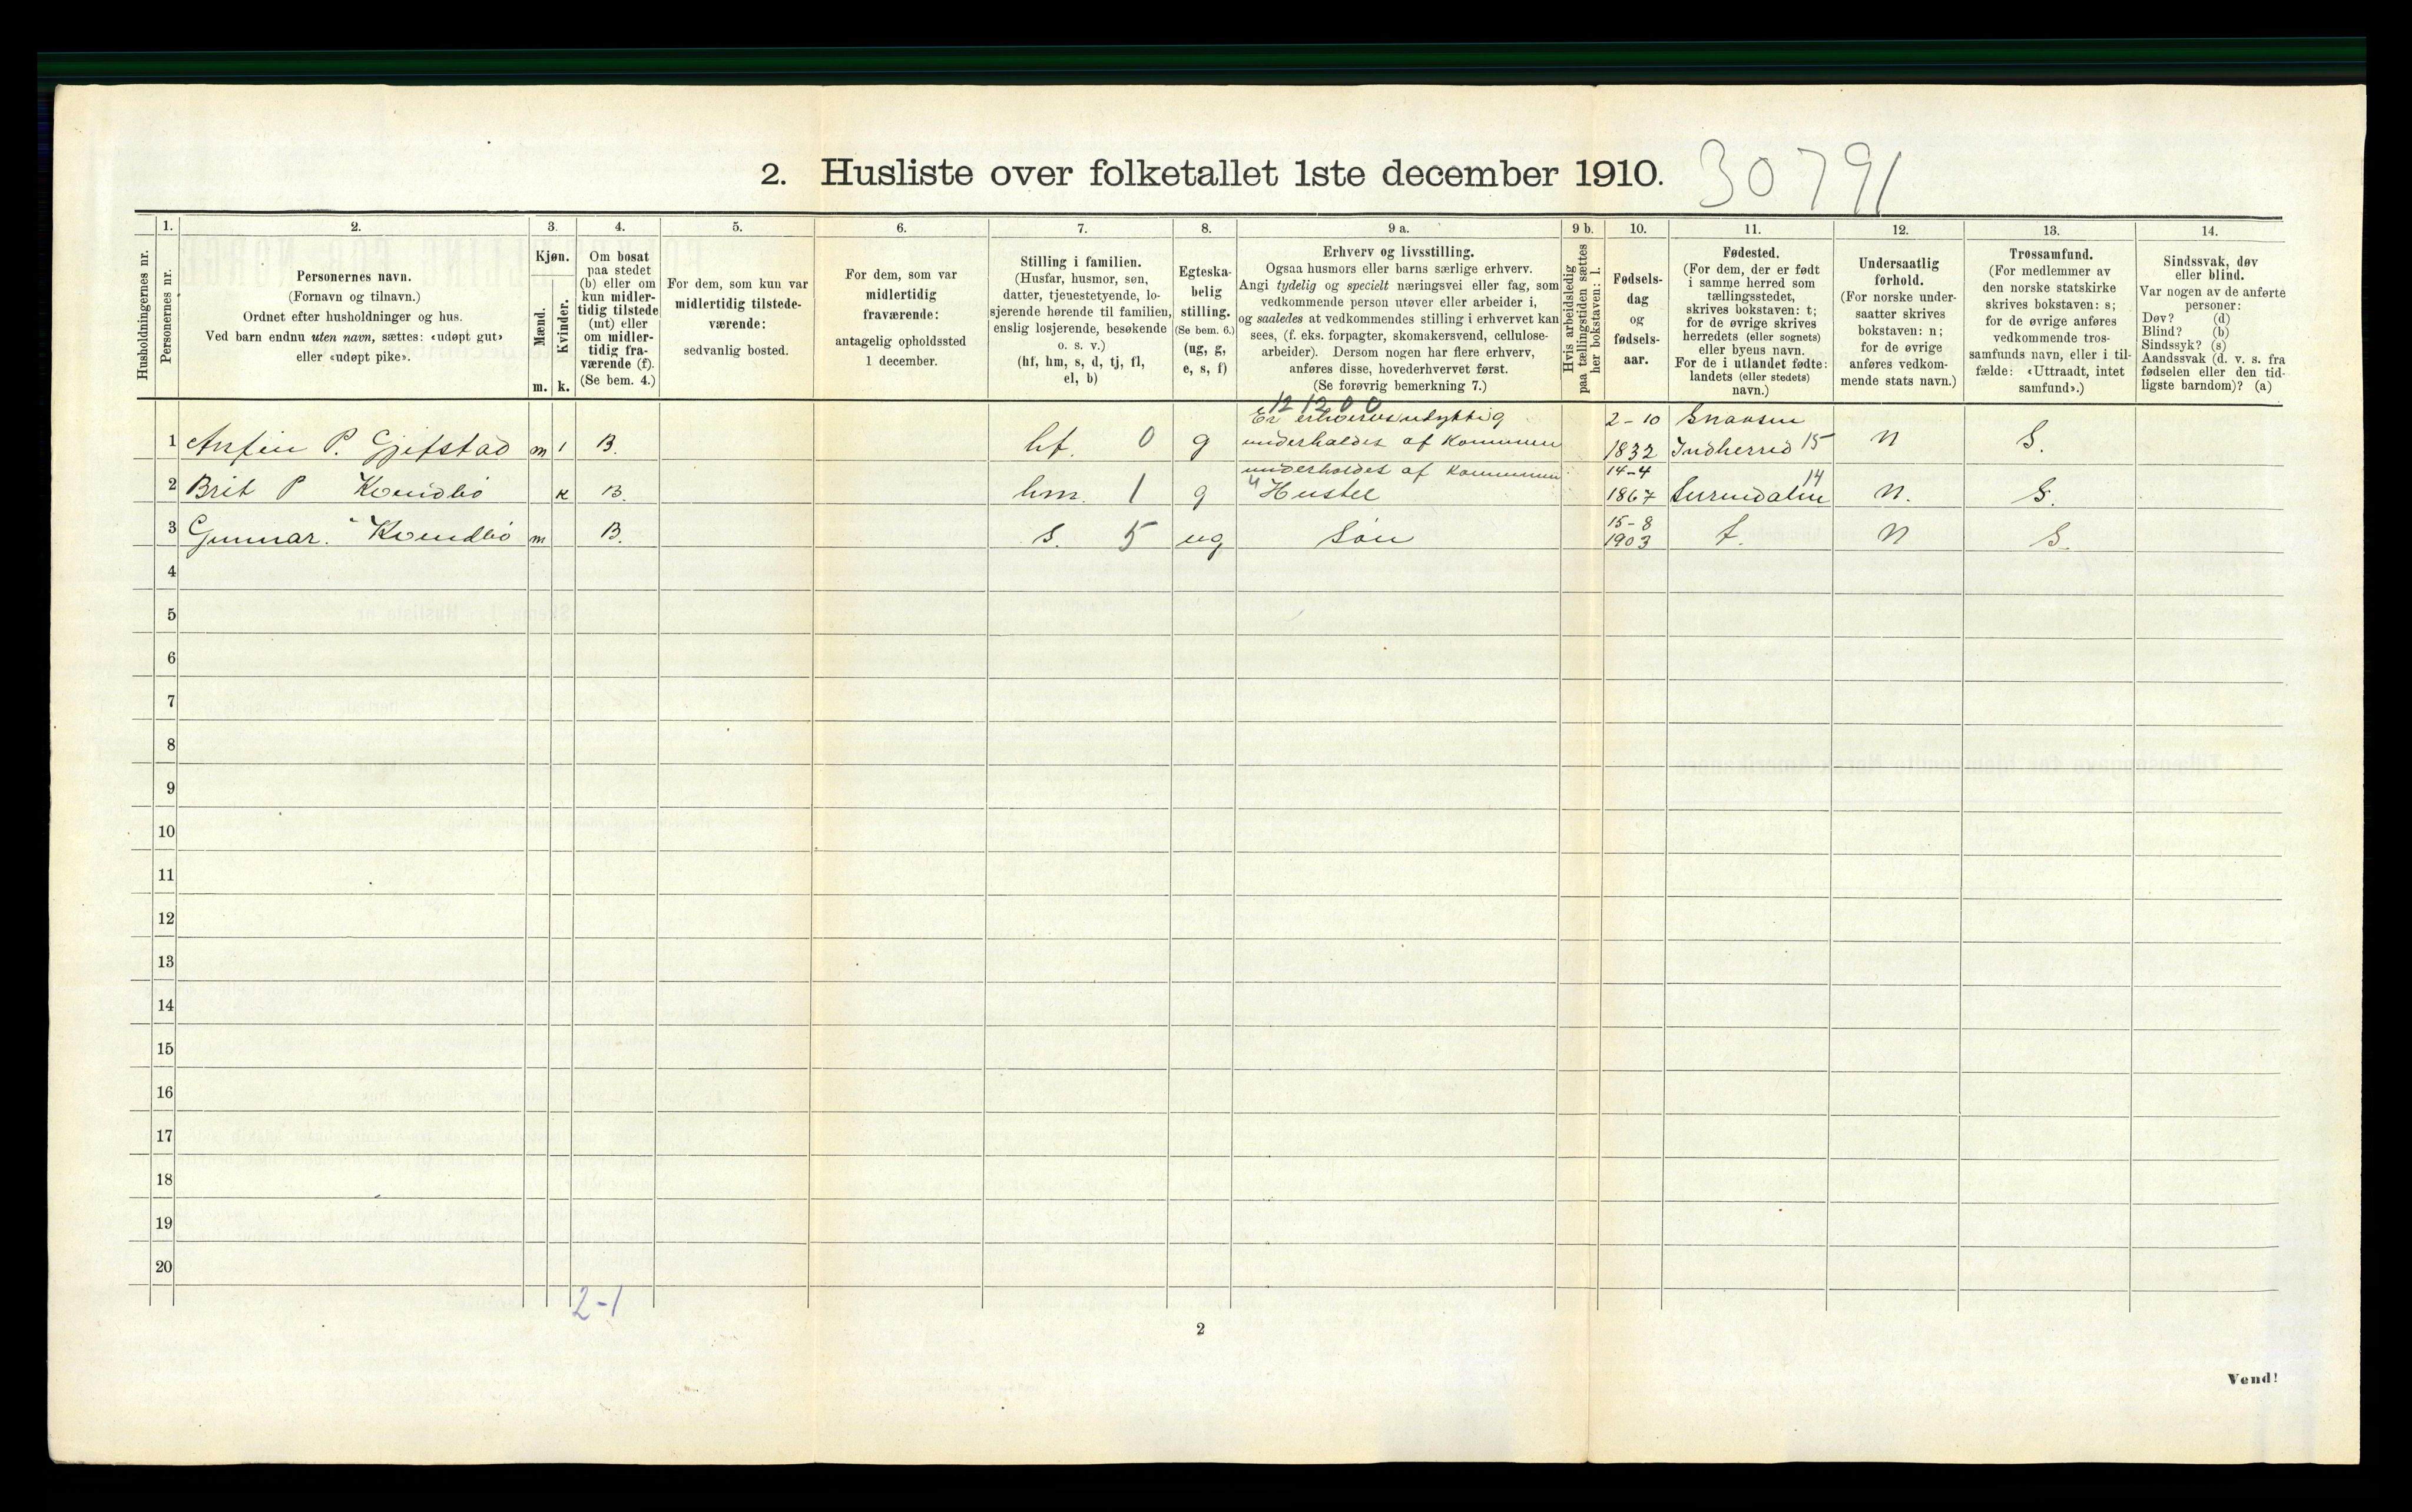 2. Husliste over folketallet 1ste december 1910.
30791
Husholdningernes nr.
1.
Personernes nr.
2.
Personernes navn.
(Fornavn og tilnavn.)
Ordnet efter husholdninger og hus.
Ved barn endnu uten navn, sættes: «udøpt gut»
eller «udøpt pike».
3.
Kjøn.
Mænd.
Kvinder.
m. k.
4.
Om bosat
paa stedet
(b) eller om
kun midler-
tidig tilstede
(mt) eller
om midler-
tidig fra-
værende (f).
(Se bem. 4.)
5.
For dem, som kun var
midlertidig tilstede-
værende:
sedvanlig bosted.
6.
For dem, som var
midlertidig
fraværende:
antagelig opholdssted
1 december.
7.
Stilling i familien.
(Husfar, husmor, søn,
datter, tjenestetyende, lo-
sjerende hørende til familien,
enslig losjerende, besøkende
o. s. v.)
(hf, hm, s, d, tj, fl,
el, b)
8.
Egteska-
belig
stilling.
(Se bem. 6.)
(ug, g,
e, s, f)
9 a.
Erhverv og livsstilling.
Ogsaa husmors eller barns særlige erhverv.
Angi tydelig og specielt næringsvei eller fag, som
vedkommende person utøver eller arbeider i,
og saaledes at vedkommendes stilling i erhvervet kan
sees, (f. eks. forpagter, skomakersvend, cellulose-
arbeider). Dersom nogen har flere erhverv,
anføres disse, hovederhvervet først.
(Se forøvrig bemerkning 7.)
9 b.
Hvis arbeidsledig
paa tællingstiden sættes
her bokstaven: l.
10.
Fødsels-
dag
og
fødsels-
aar.
11.
Fødested.
(For dem, der er født
i samme herred som
tællingsstedet,
skrives bokstaven: t;
for de øvrige skrives
herredets (eller sognets)
eller byens navn.
For de i utlandet fødte:
landets (eller stedets)
navn.)
12.
Undersaatlig
forhold.
(For norske under-
saatter skrives
bokstaven: n;
for de øvrige
anføres vedkom-
mende stats navn.)
13.
Trossamfund.
(For medlemmer av
den norske statskirke
skrives bokstaven: s;
for de øvrige anføres
vedkommende tros-
samfunds navn, eller i til-
fælde: «Uttraadt, intet
samfund».)
14.
Sindssvak, døv
eller blind.
Var nogen av de anførte
personer:
Døv? (d)
Blind? (b)
Sindssyk? (s)
Aandssvak (d. v. s. fra
fødselen eller den tid-
ligste barndom)? (a)
12 12 0 0
Er erhvervsudyktig 2-10 Snaasen
1 Anfin P. Gjefstad m 1 B. hf. 0 g underholdes af Kommunen 1832 Indherred 15 n S.
underholdes af Kommunen 14-4 14
2 Brit P Kvendbø k B. hm. 1 g Hustel 1867 Surendalen n. S.
15-8
3 Gunnar. " Kvendbø m B. s. 5 ug Søn 1903 t. n S.
4
5
6
7
8
9
10
11
12
13
14
15
16
17
18
19
20
2-1
2
Vend!